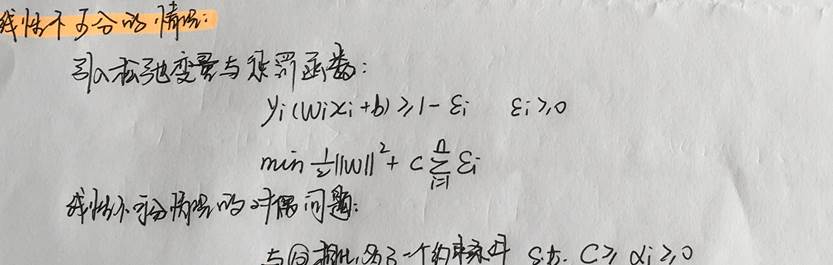 线性不可分的情况:
引入松弛变量与惩罚函数:
yi(wixi+b)≥1-εi εi≥0
min ½||w||²+C∑ⁿᵢ₌₁εi
线性不可分情况的对偶问题:
与①相比,多了一个约束条件 s.t. C≥αi≥0